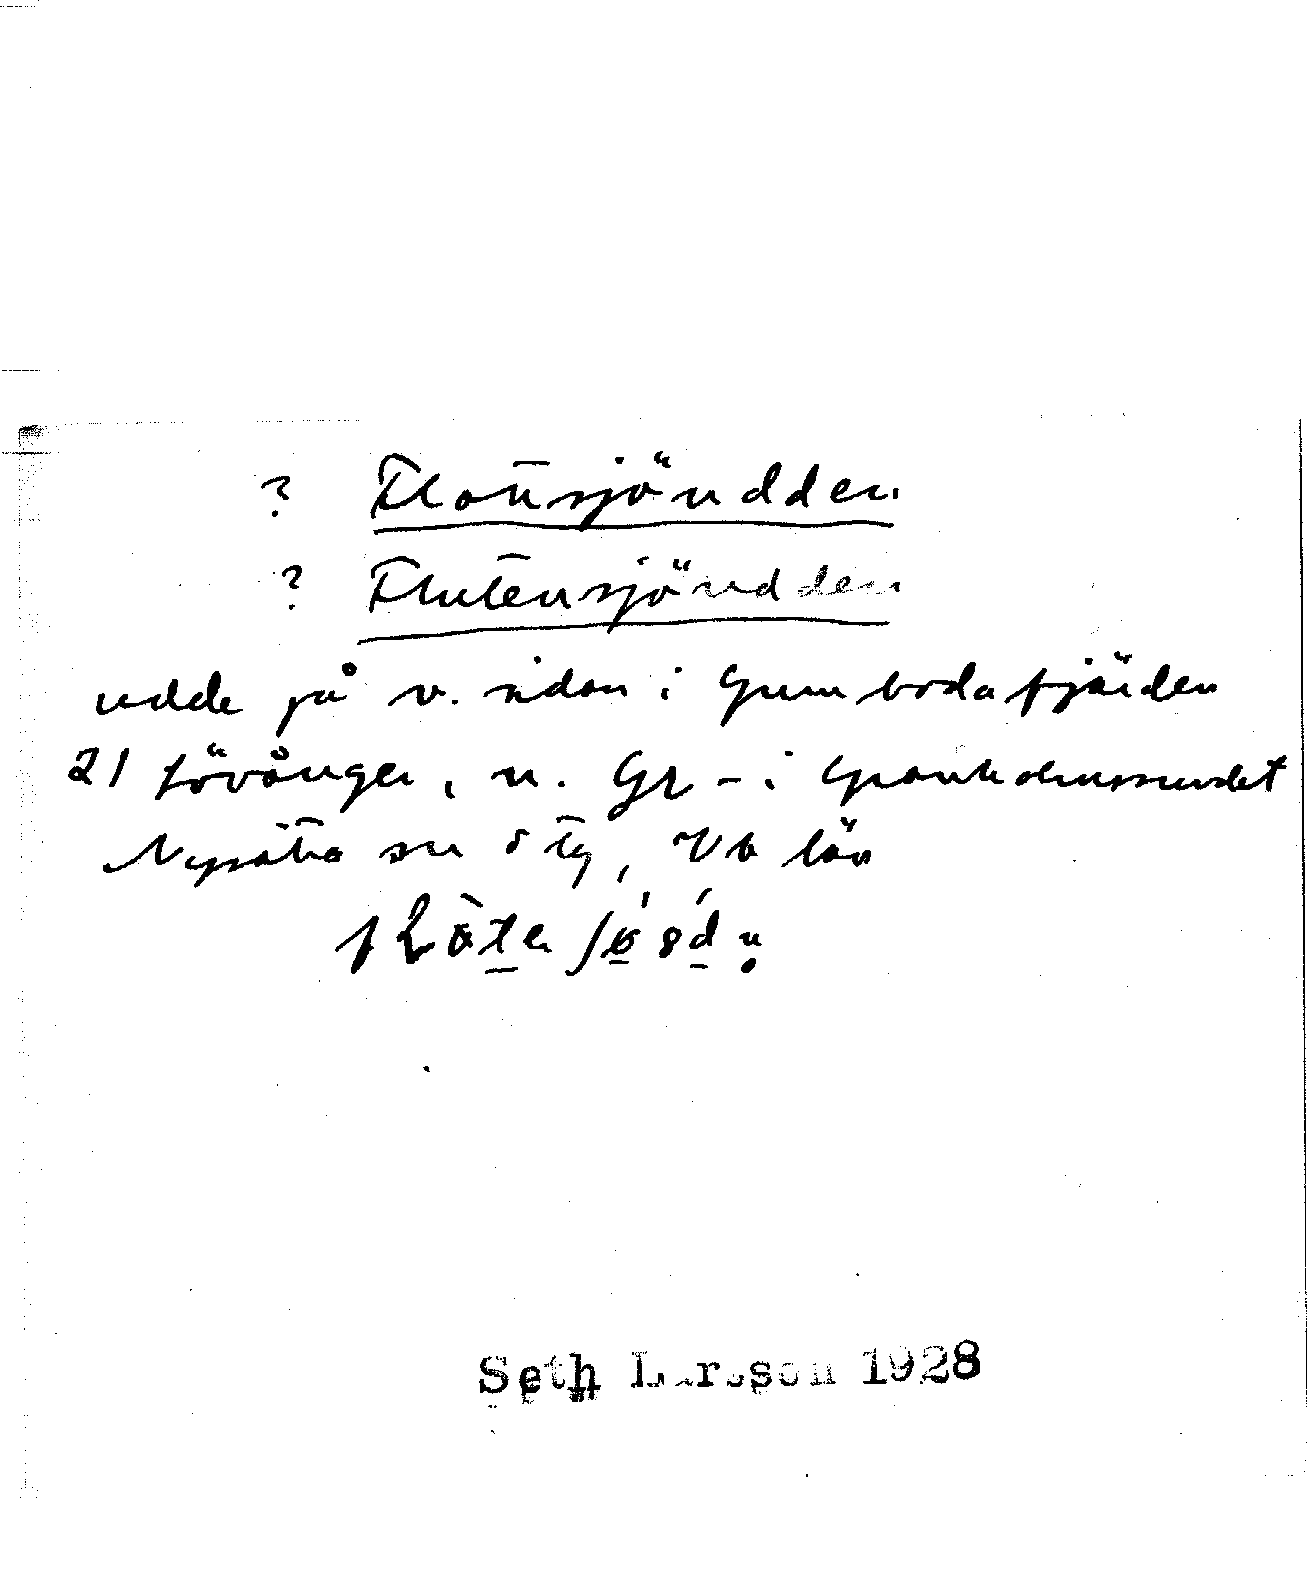 ? Flottsjöudden
? Flutensjöudden
udde på v. sidan i Gumbodafjärden
21 Lövånger, n. Gr - i Granholmssundet
Nysätra sn ö tg, Vb län
Seth Larsson 1928